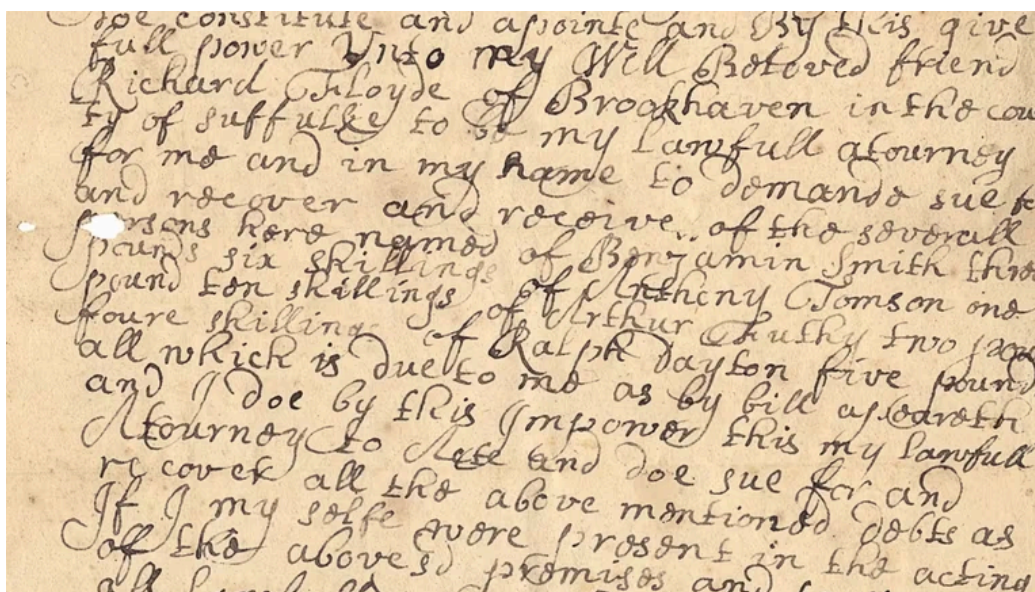 doe constitute and apointe and By this give
full power Unto my Well Beloved friend
Richard Floyde of Brookhaven in the cou
ty of suffulke to be my lawfull atourney
for me and in my name to demande sue fo
and recover and receive of the severall
persons here named of Benjamin Smith thre
pounds six shillings of Anthony Tomson one
pound ten shillings of Arthur two
foure shilling of Ralph Dayton five pound
all which is due to me as by bill apeareth
and I doe by this Impower this my lawfull
Atourney to Acte and doe sue for and
recover all the above mentioned debts as
If I my selfe were present in the acting
of the abovesd premises and
all